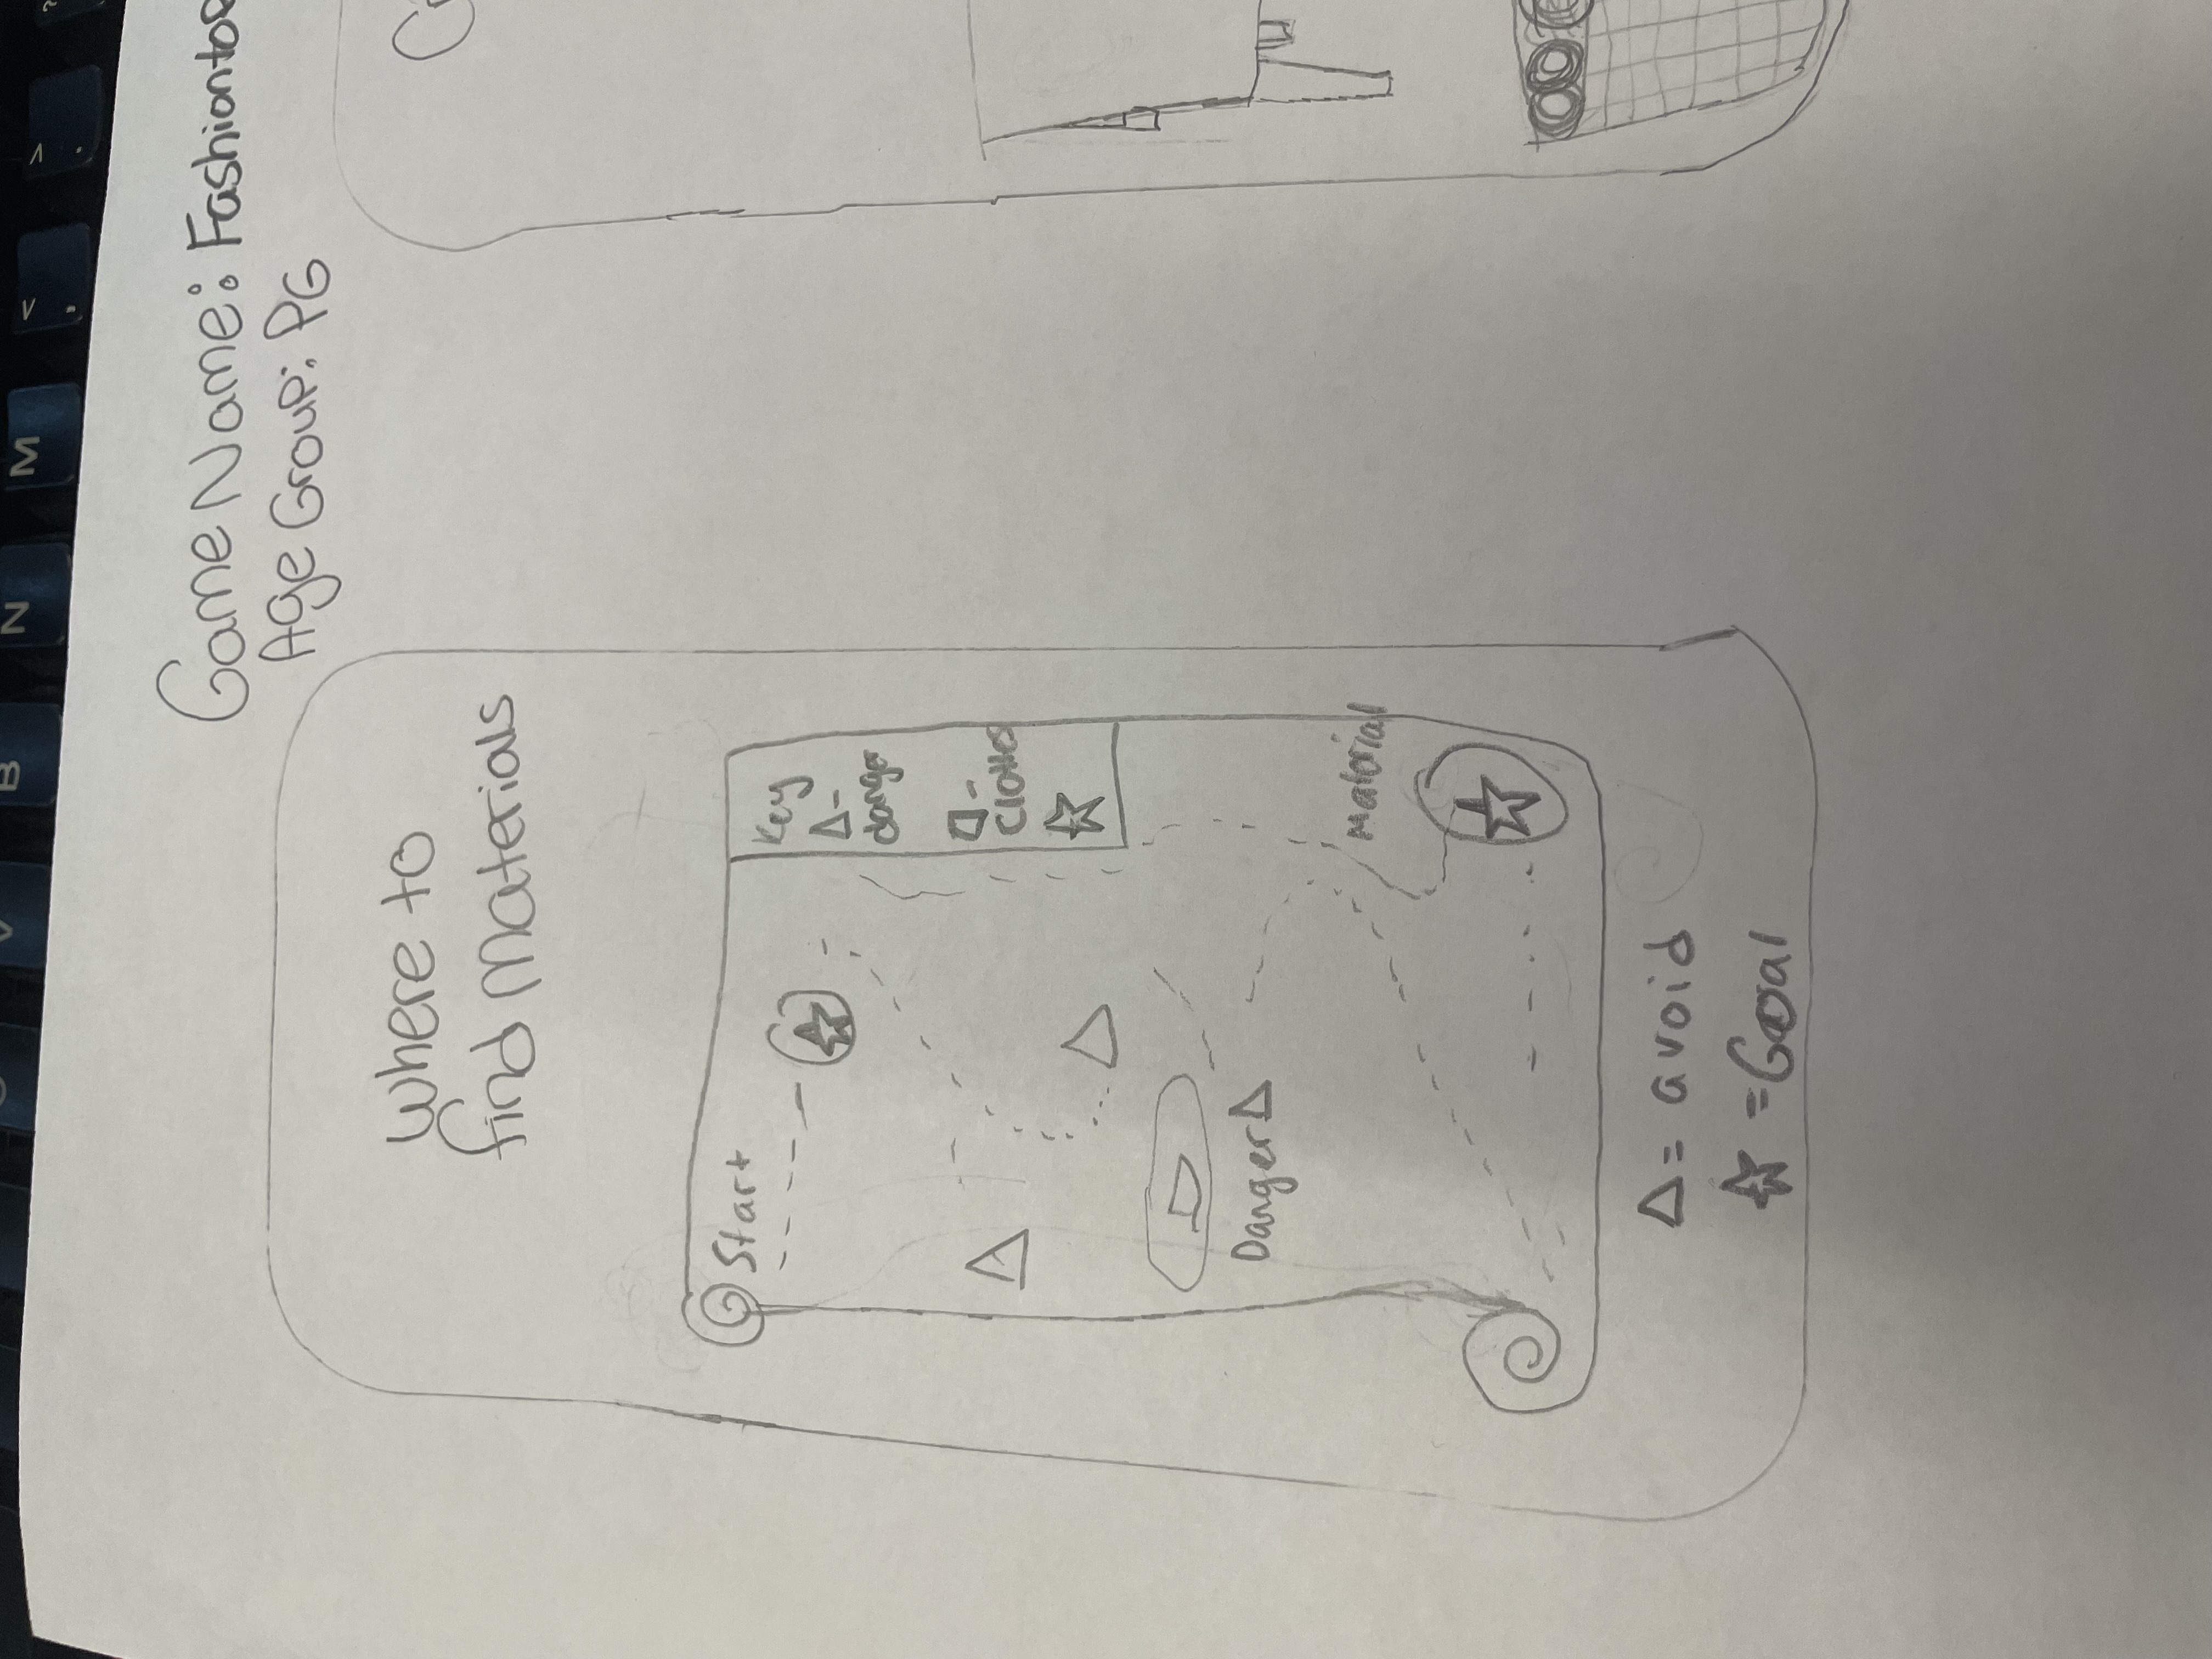 C V B N M < ,
> . ?
Game Name: Fashiontop
Age Group: PG
where to
find Materials
Start
Key
△-
danger
□-
Clothes
☆
Danger △
Material
△= avoid
☆ =Goal